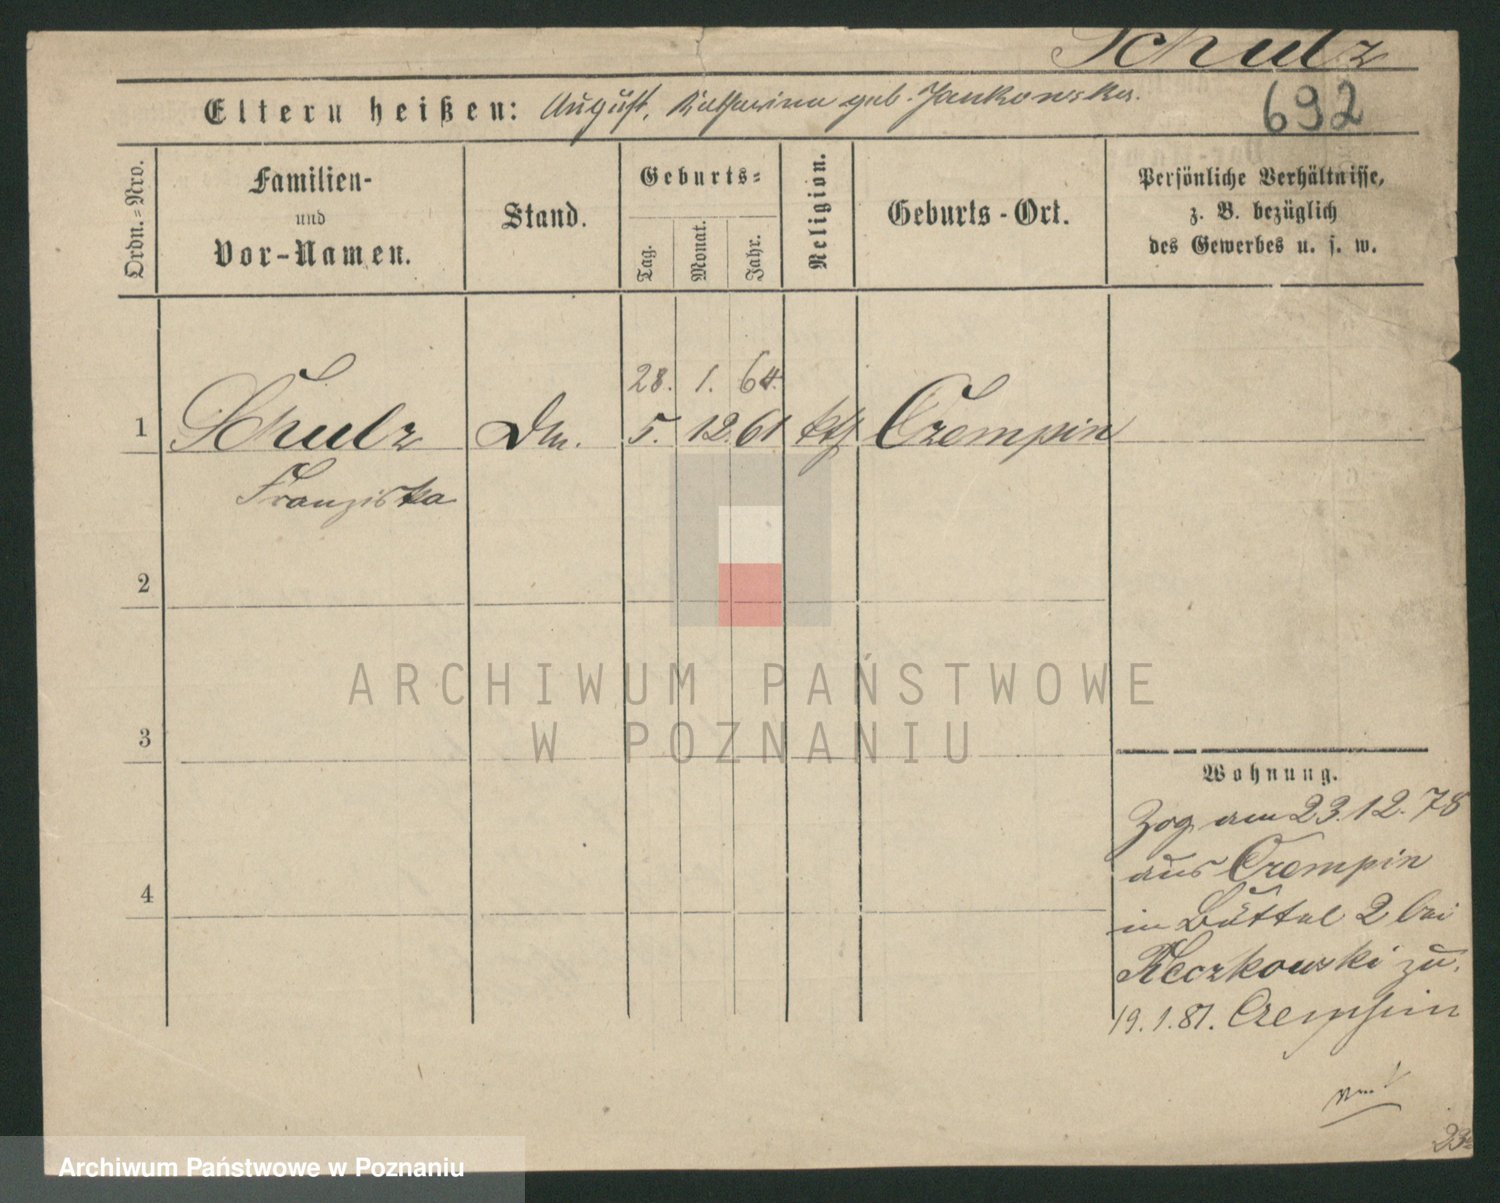 Schulz
692
Eltern heißen: August, Katharina geb. Jankowska.
Ordn.=Nro.
Familien-
und
Vor-Namen.
Stand.
Geburts=
Tag.
Monat.
Jahr.
Religion.
Geburts-Ort.
Persönliche Verhältnisse,
z. B. bezüglich
des Gewerbes u. s. w.
28. 1. 64.
1 Schulz 5. 12. 61 kth Czempin
Franziska
2
3
4
Wohnung.
Zog am 23.12.78
aus Czempin
in Büttel 2 bei
Kleczkowski zu.
19.1.81. Czempin
ARCHIWUM PAŃSTWOWE
W POZNANIU
Archiwum Państwowe w Poznaniu